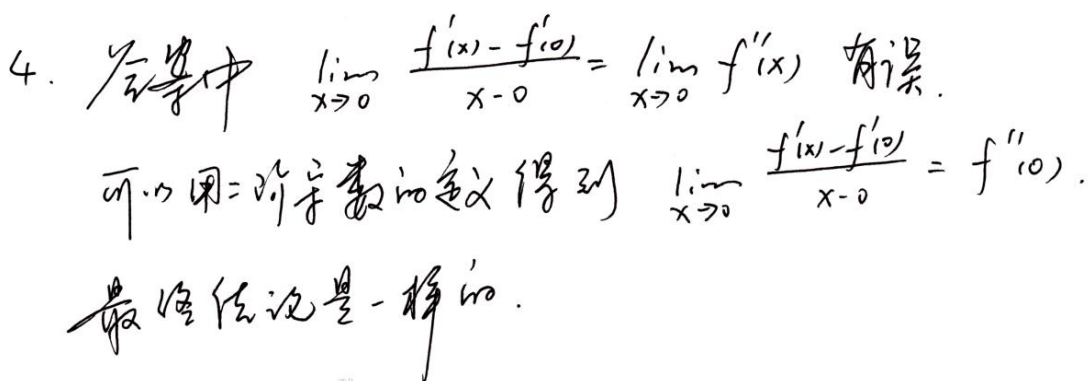 4. 答案中 lim x→0 (f'(x) - f'(0))/(x-0) = lim x→0 f''(x) 有误.
可以用二阶导数的定义得到 lim x→0 (f'(x)-f'(0))/(x-0) = f''(0).
最终结论是一样的.